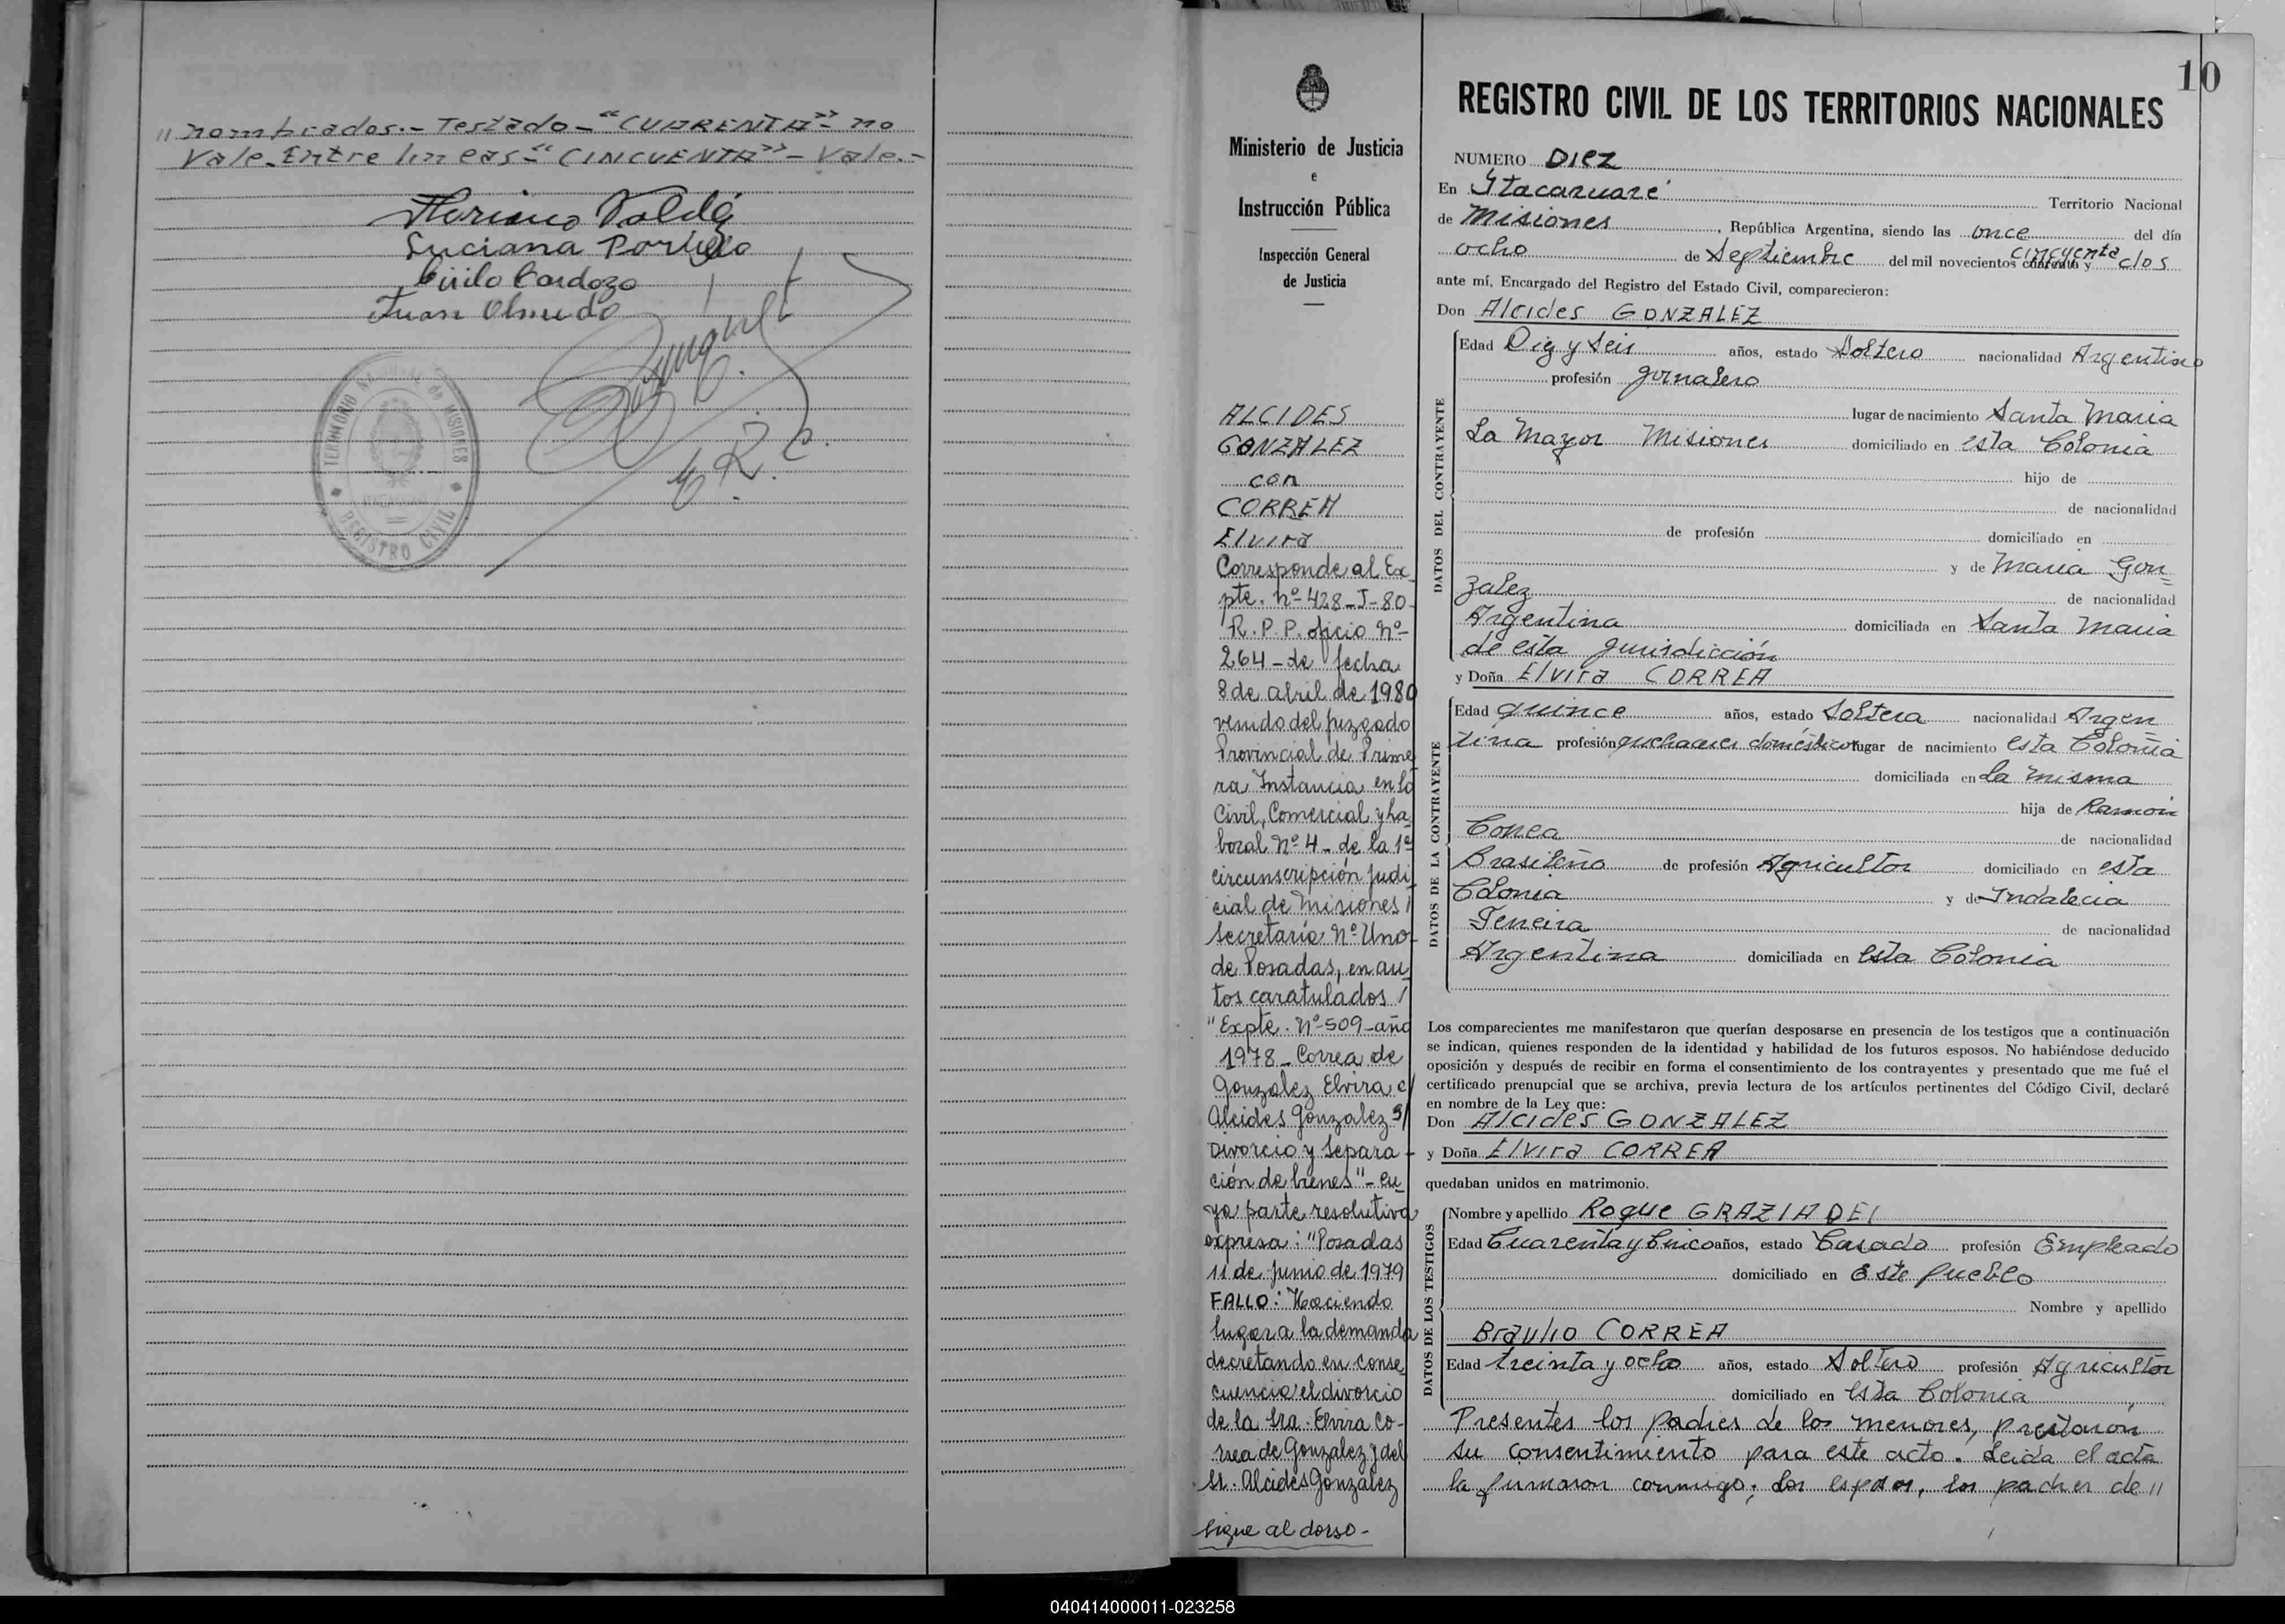 " nombrados.- Testado-"CUARENTA"- no
Vale-Entre lineas-"CINCUENTA"- Vale.-
Luciana Portillo
Cirilo Cardozo
Juan Olmedo
E. R. C.
TERRITORIO NACIONAL de MISIONES
REGISTRO CIVIL
Ministerio de Justicia
e
Instrucción Pública
Inspección General
de Justicia
ALCIDES
GONZALEZ
con
CORREA
Elvira
Corresponde al Ex
pte. nº 428-J-80-
R.P.P. oficio nº-
264-de fecha
8 de abril de 1980
venido del juzgado
Provincial de Prime
ra Instancia en lo
Civil, Comercial y La
boral Nº 4- de la 1ª
circunscripción judi
cial de Misiones /
secretaría Nº Uno-
de Posadas, en au
tos caratulados /
"Expte. Nº-509-año
1978-Correa de
Gonzalez Elvira c/
Alcides Gonzalez s/
Divorcio y Separa-
ción de bienes"- cu
ya parte resolutiva
expresa: "Posadas
11 de junio de 1979
FALLO: Haciendo
lugar a la demanda
decretando en conse
cuencia el divorcio
de la Sra. Elvira Co-
rrea de Gonzalez y del
Sr. Alcides Gonzalez
sigue al dorso-
10
REGISTRO CIVIL DE LOS TERRITORIOS NACIONALES
NUMERO Diez
En Itacaruaré Territorio Nacional
de Misiones, República Argentina, siendo las once del día
cincuenta
ocho de Septiembre del mil novecientos cuarenta y dos
ante mí, Encargado del Registro del Estado Civil, comparecieron:
Don Alcides GONZALEZ
DATOS DEL CONTRAYENTE
Edad Diez y Seis años, estado Soltero nacionalidad Argentino
profesión jornalero
lugar de nacimiento Santa Maria
La Mayor Misiones domiciliado en esta Colonia
hijo de
de nacionalidad
de profesión domiciliado en
y de Maria Gon=
zalez de nacionalidad
Argentina domiciliada en Santa Maria
de esta jurisdicción
y Doña Elvira CORREA
DATOS DE LA CONTRAYENTE
Edad quince años, estado Soltera nacionalidad Argen
tina profesión quehaceres domésticos lugar de nacimiento esta Colonia
domiciliada en la misma
hija de Ramón
Correa de nacionalidad
Brasileño de profesión Agricultor domiciliado en esta
Colonia y de Indalecia
Ferreira de nacionalidad
Argentina domiciliada en esta Colonia
Los comparecientes me manifestaron que querían desposarse en presencia de los testigos que a continuación
se indican, quienes responden de la identidad y habilidad de los futuros esposos. No habiéndose deducido
oposición y después de recibir en forma el consentimiento de los contrayentes y presentado que me fué el
certificado prenupcial que se archiva, previa lectura de los artículos pertinentes del Código Civil, declaré
en nombre de la Ley que:
Don Alcides GONZALEZ
y Doña Elvira CORREA
quedaban unidos en matrimonio.
DATOS DE LOS TESTIGOS
Nombre y apellido Roque GRAZIADEI
Edad Cuarenta y Cinco años, estado Casado profesión Empleado
domiciliado en Este pueblo
Nombre y apellido
Braulio CORREA
Edad treinta y ocho años, estado Soltero profesión Agricultor
domiciliado en esta Colonia
Presentes los padres de los menores, prestaron
su consentimiento para este acto. Leida el acta
la firmaron conmigo; los esposos, los padres de "
040414000011-023258